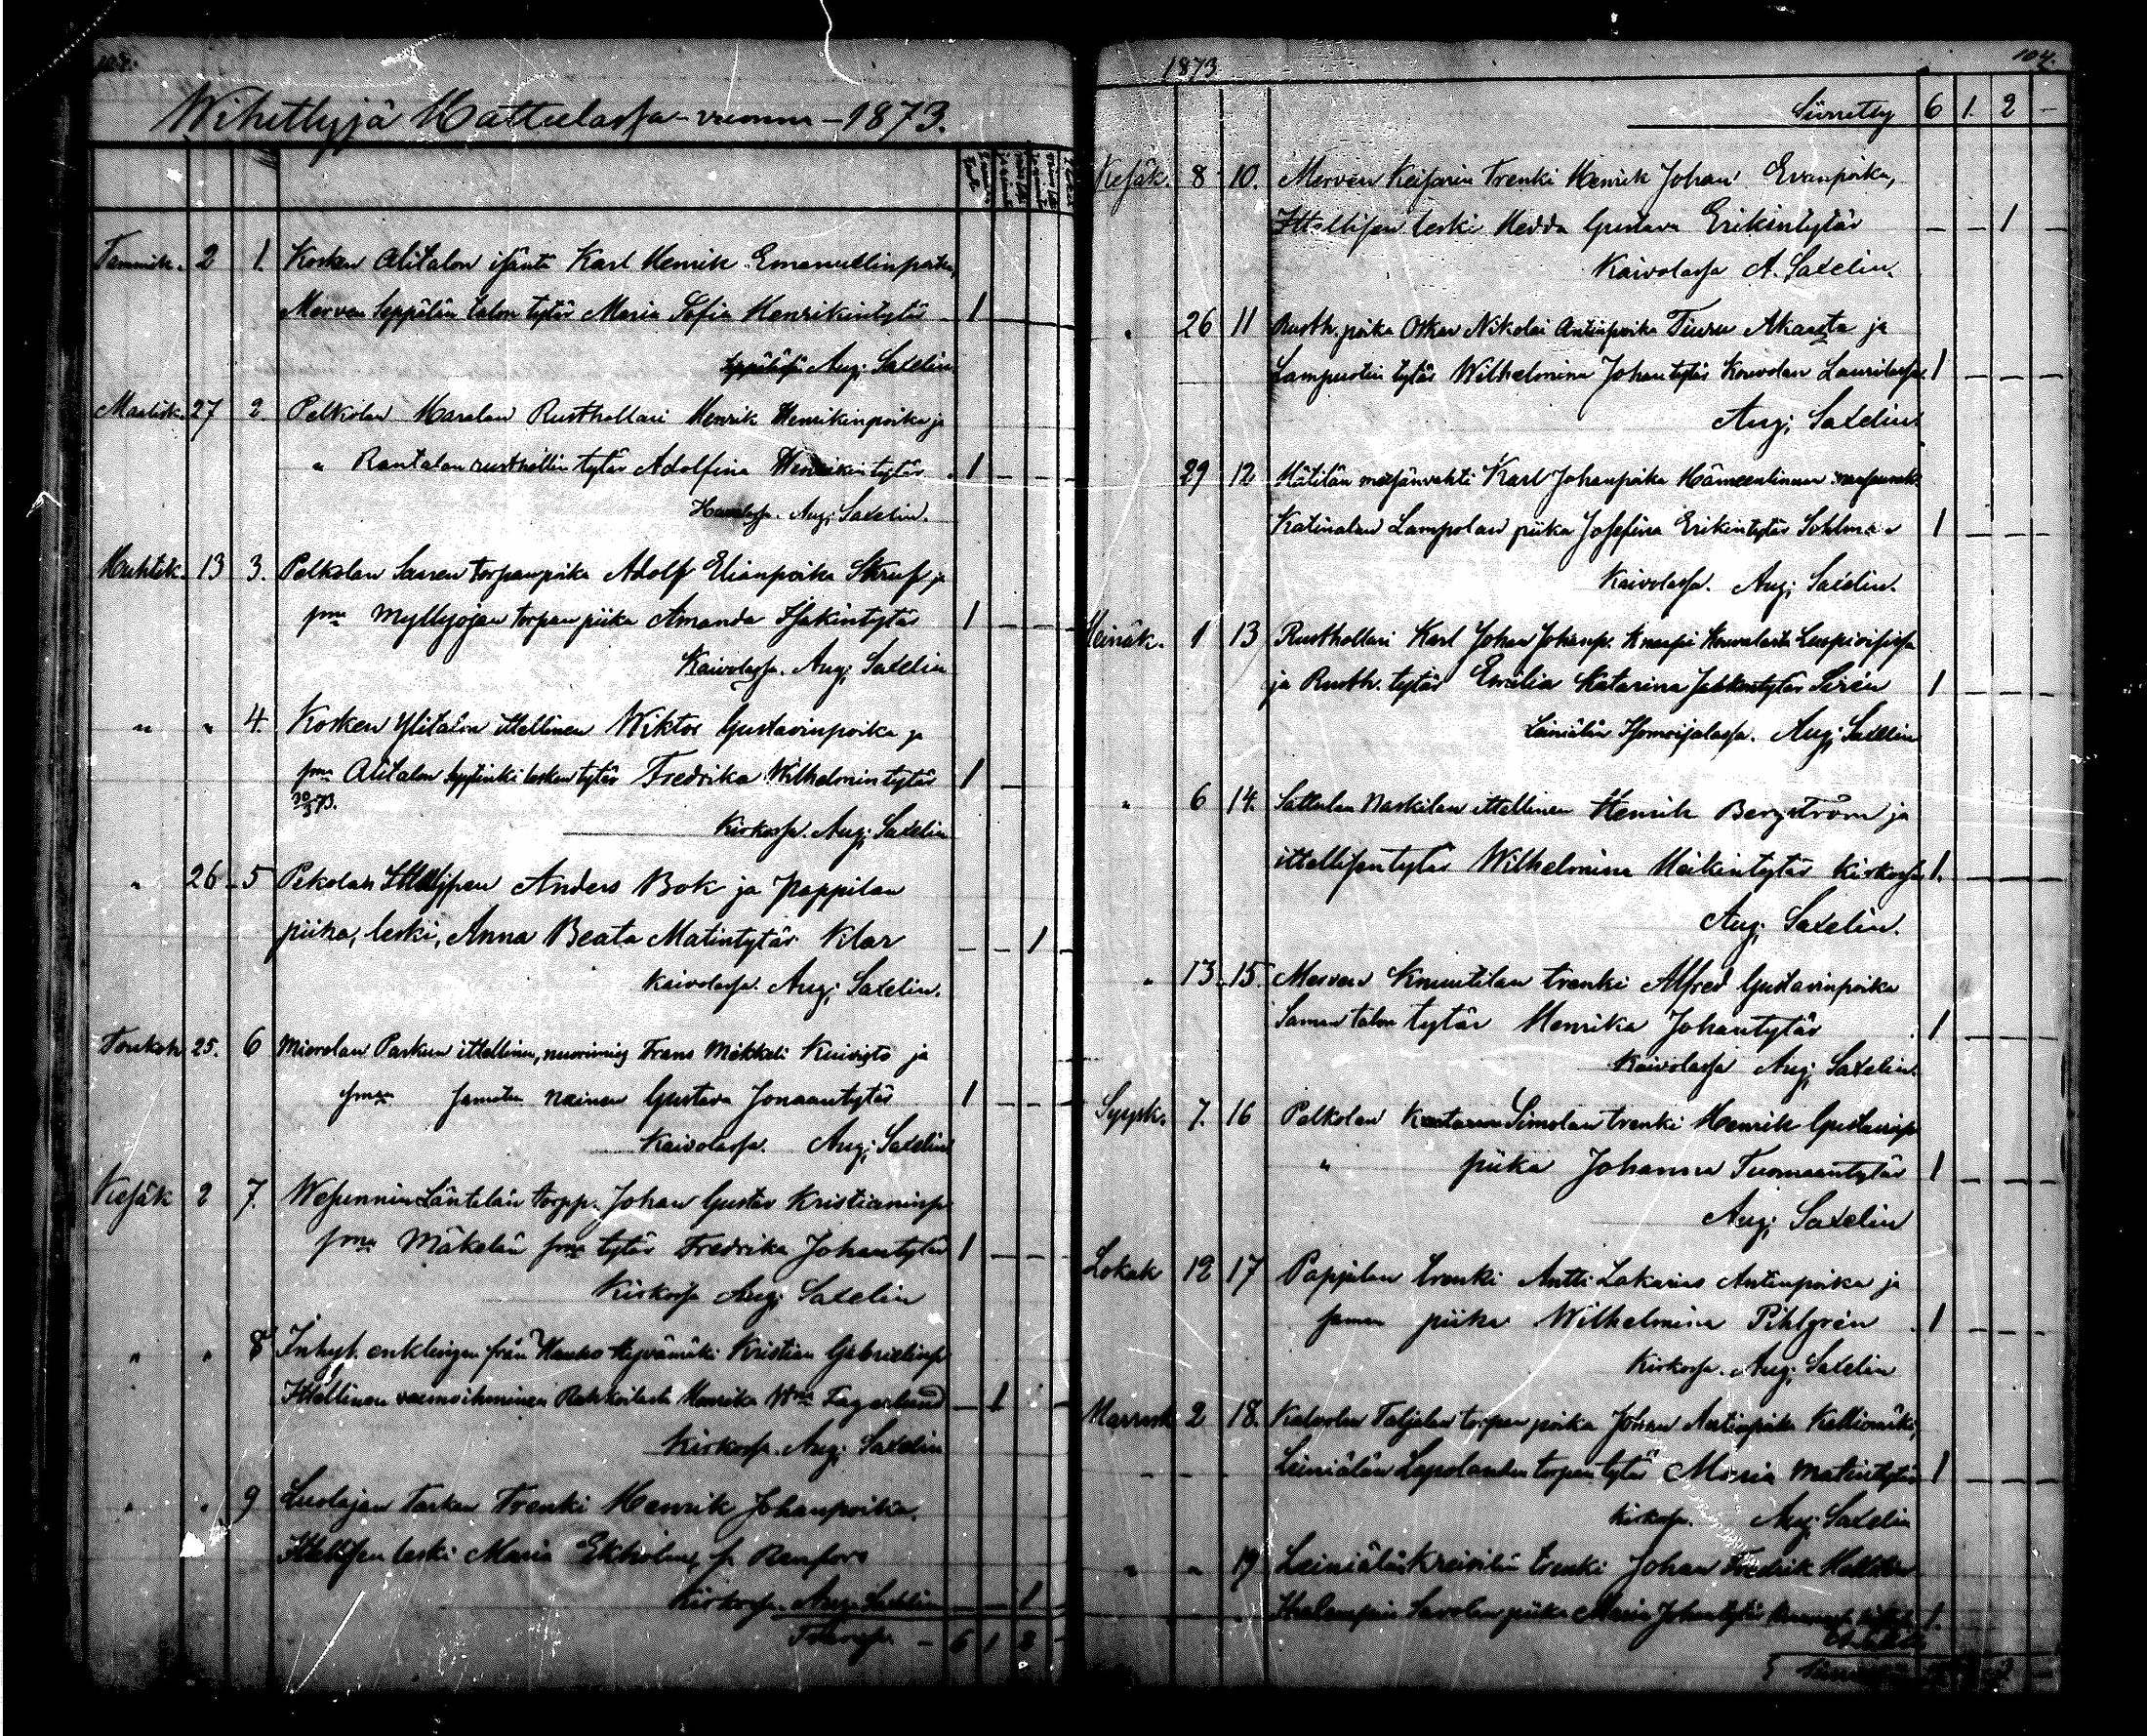 Wihittyjä Hattulassa vuonna 1873.
Tammik. 2 1. Kosken Alitalon isäntä Karl Henrik Emanuelinpoika,
Merven Seppälän talon tytär Maria Sofia Henrikintytär 1 — — —
Seppälässä Aug. Saxelin.
Maalisk. 27 2. Pelkolan Haralan Rusthollari Henrik Henrikinpoika ja
" Rantalan rusthollin tytär Adolfina Henrikintytär 1 — — —
Aug. Saxelin.
Huhtik. 13 3. Pelkolan Saaren torpanpoika Adolf Elianpoika Skruf ja
sma Myllyojan torpan piika Amanda Isakintytär 1 — — —
Kaivolassa. Aug. Saxelin
" " 4. Kosken Ylitalon ittellinen Wiktor Gustavinpoika ja
sma Alitalon lesken tytär Fredrika Wilhelmintytär 1 —
30/3 73.
Kirkossa. Aug. Saxelin
" 26 5 Pekolan Ittellisen Anders Bok ja Pappilan
piika, leski, Anna Beata Matintytär Klar — — 1 —
Kaivolassa. Aug. Saxelin.
Toukok 25. 6 Mierolan Paskun ittellinen, nuorimies Frans Mikkeli Kuivisto ja
sman nainen Gustava Jonaantytär 1 — — —
Kaivolassa. Aug. Saxelin
Kesäk 2 7. Wesunnin Läntelän torpp. Johan Gustav Kristianinp
sma Mäkelän sma tytär Fredrika Johantytär 1 — — —
Kirkossa Aug. Saxelin
" " 8 Inhys. enklingen från Hauho Hyvämäki Kristian Gabrielinp
Ittellinen vaimoihminen Henrika Wma Fagerlund — 1 —
Kirkossa. Aug. Saxelin
" " 9 Luolajan Taskan Trenki Henrik Johanpoika.
Ittellisen leski Maria Ekholm, f. Renfors
Kirkossa. Aug. Saxelin — — 1
— 6 1 2 —
1873 107.
Siirretty 6 1. 2 —
Kesäk. 8 10. Merven Keisarin trenki Henrik Johan Evanpoika,
Ittellisen leski Hedda Gustava Erikintytär — — 1
Kaivolassa A. Saxelin.
" 26 11 Rusth. poika Oskar Nikolai Antinpoika Tiuru Akaasta ja
Lampuotin tytär Wilhelmina Johantytär Kouvolan Laurilassa. 1 — — —
Aug. Saxelin.
29 12 Hätilän metsänvahti Karl Johanpoika Hämeenlinnan
Katinalan Lampolan piika Josefina Erikintytär Sohlman 1 — — —
Kaivolassa. Aug. Saxelin.
Heinäk. 1 13 Rusthollari Karl Johan Johanp.
ja Rusth. tytär Emilia Katarina Sirén 1 — — —
Leiniälän Isomoisalassa. Aug. Saxelin
" 6 14. Sattulan Naskilan ittellinen Henrik Bergström ja
ittellisen tytär Wilhelmina Heikintytär Kirkossa 1. — — —
Aug. Saxelin.
" 13 15. Merven Knuutilan trenki Alfred Gustavinpoika
Saman talon tytär Henrika Johantytär 1 — — —
Kaivolassa Aug. Saxelin.
Syysk. 7. 16 Pelkolan Simolan trenki Henrik Gustavinp
" piika Johanna Tuomaantytär 1 — — —
Aug. Saxelin
Lokak 12 17 Pappilan trenki Antti Sakarias Antinpoika ja
saman piika Wilhelmina Pihlgrén 1 — — —
Kirkossa. Aug. Saxelin
Marrask 2 18. Kalvolan Taljalan torpan poika Johan Antinpoika Kalliomäki,
Leiniälän torpan tytär Maria Matintytär 1 — — —
Kirkossa. Aug. Saxelin
" " 19 Leiniälän Kreivilän trenki Johan Fredrik
Savolan piika Maria Johantytär 1.
2 —